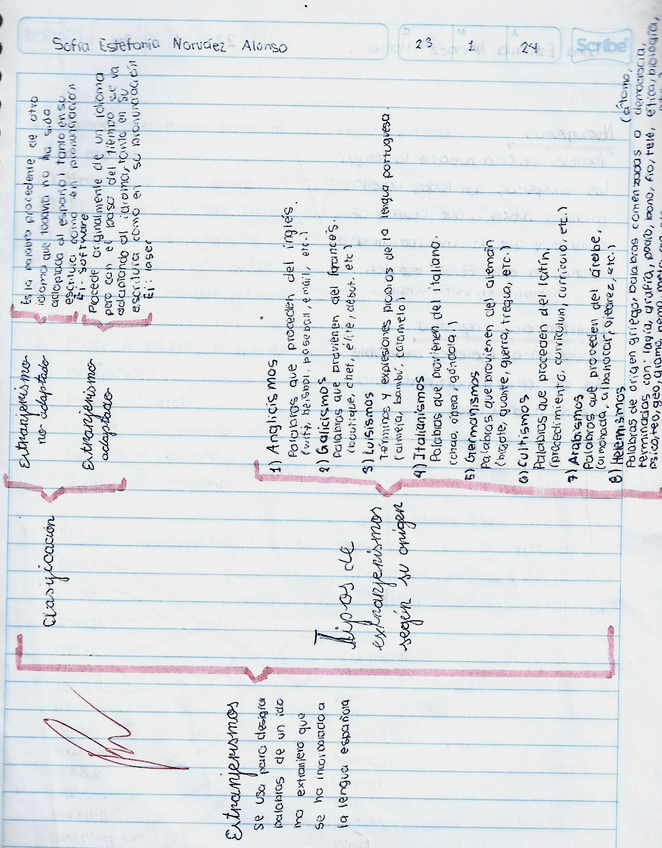 Sofía Estefanía Narváez Alonso
D M A
23 1 24
Scribe
Extranjerismos
se usa para designa
palabras de un ido
ma extranjero que
se ha incorporado a
la lengua española
Clasificación
Extranjerismo
no adaptado
Es la palabra procedente de otro
idioma que todavía no ha sido
adaptada al español tanto en su
escritura como en pronunciación
Ej: software
Extranjerismo
adaptado
Procede originalmente de un idioma
pero con el paso del tiempo se va
adaptando al idioma, tanto en su
escritura como en su pronunciación
Ej: laser
Tipos de
extranjerismos
según su origen
1) Anglicismos
Palabras que proceden del inglés.
(wifi, beisbol, email, etc.)
2) Galicismos
Palabras que provienen del francés.
(boutique, chef, élite, début, etc)
3) Lusismos
Términos y expresiones propios de la lengua portuguesa.
(almeja, bambú, caramelo)
4) Italianismos
Palabras que provienen del italiano.
(chao, opera, góndola.)
5) Germanismos
Palabras que provienen del alemán
(brigate, guante, guerra, tregua, etc.)
6) Cultismos
Palabras que proceden del latín.
(procedimiento, curriculum, currículo, etc.)
7) Arabismos
Palabras que proceden del árabe.
(almohada, ajedrez, etc.)
8) Helenismos
Palabras de origen griego, palabras comenzadas o
terminadas con: logía, grafía,
(átomo,
democracia,
ética, biología,